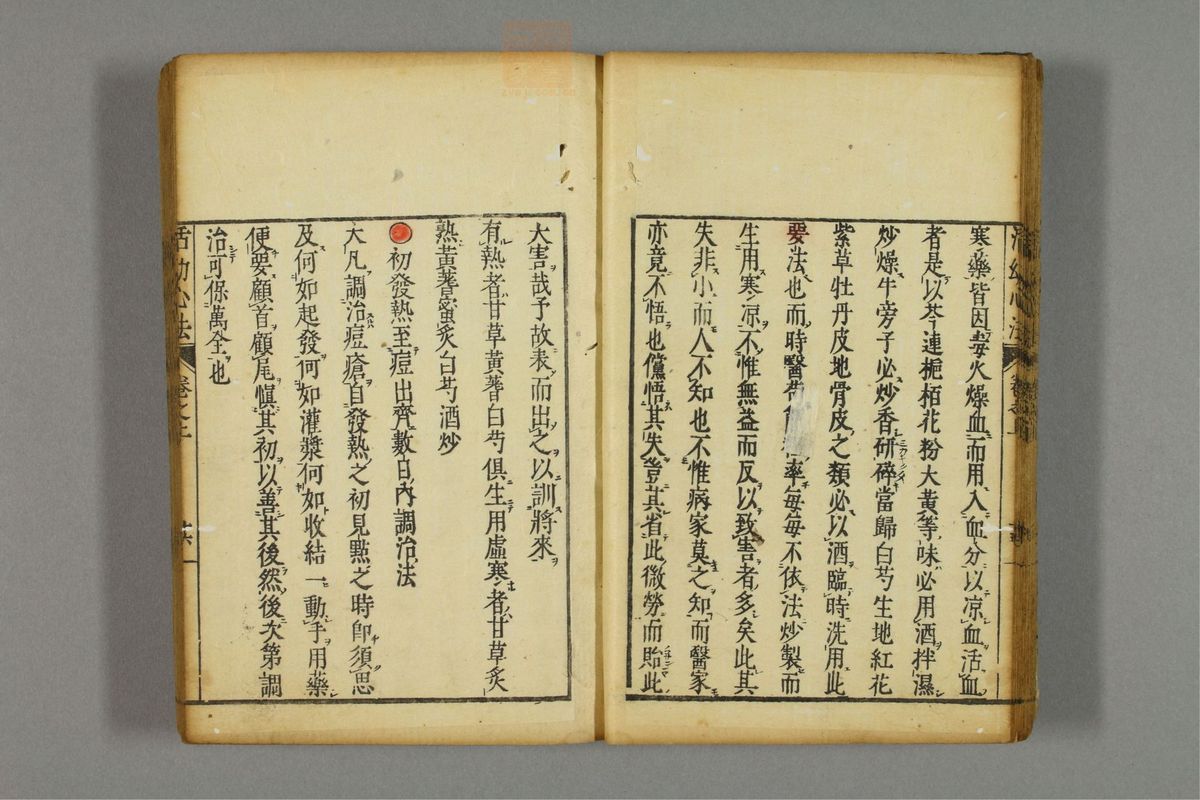 寒藥皆因毒火燥血而用入血分以凉血活血
者是以芩連梔栢花粉大黃等味必用酒拌濕
炒燥牛旁子必炒香研碎當歸白芍生地紅花
紫草牡丹皮地骨皮之類必以酒臨時洗用此
要法也而時醫苟率每每不依法炒製而
生用寒凉不惟無益而反以致害者多矣此其
失非小而人不知也不惟病家莫之知而醫家
亦竟不悟也儻悟其失豈其省此微勞而貽此
大害哉予故表而出之以訓將來
有熱者甘草黃蓍白芍俱生用虛寒者甘草炙
熟黃蓍蜜炙白芍酒炒
初發熱至痘出齊數日內調治法
大凡調治痘瘡自發熱之初見點之時卽須思
及何如起發何如灌漿何如收結一動手用藥
便要顧首顧尾愼其初以善其後然後次第調
治可保萬全也
活幼心法 卷之二 六